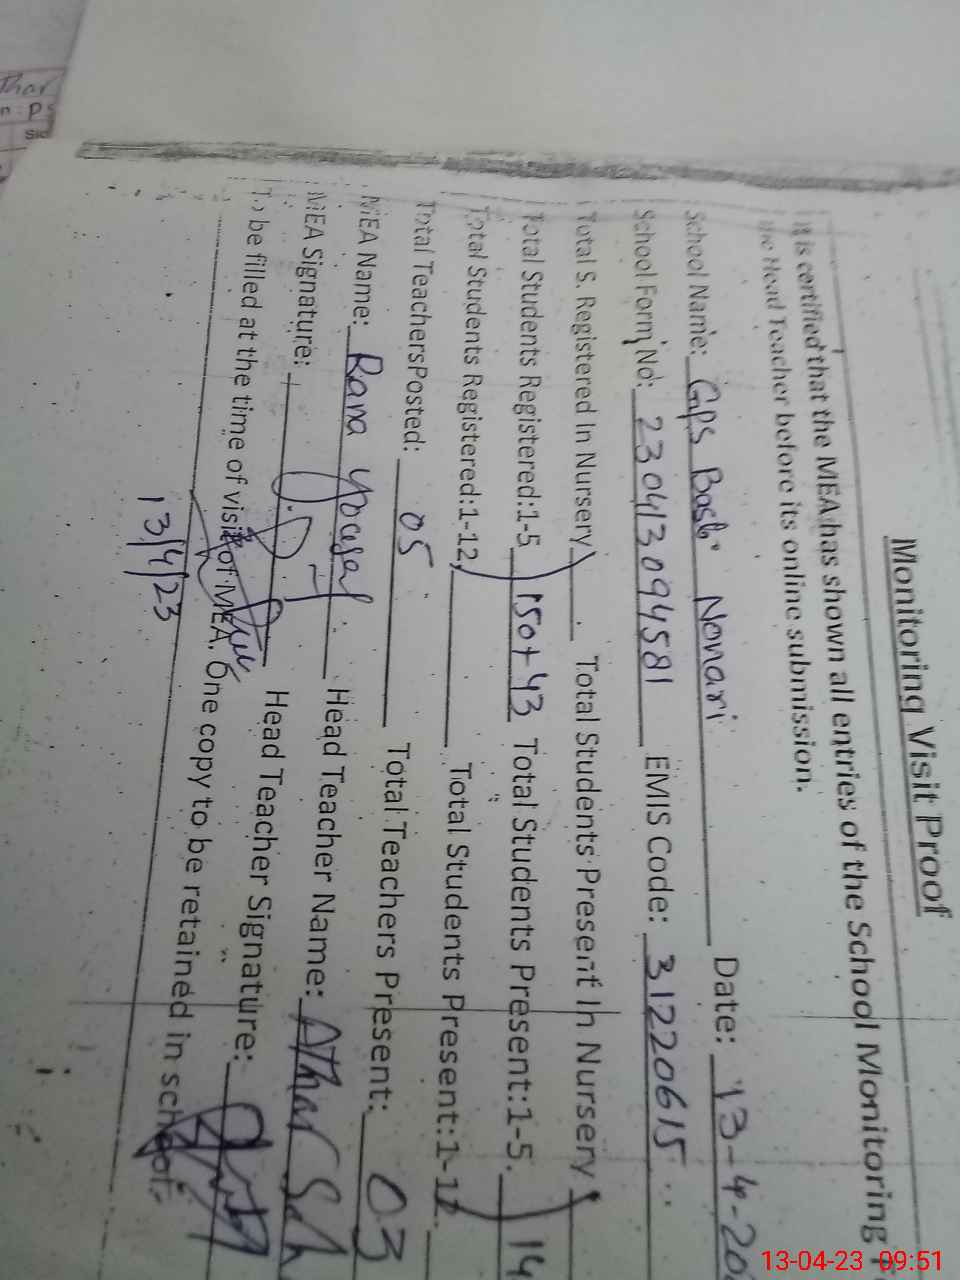 Monitoring Visit Proof
It is certified that the MEA has shown all entries of the School Monitoring
the Head Teacher before its online submission.
School Name: GPS Basti Nonari Date: 13-4-20
School Form No: 230413094581 EMIS Code: 31220615
Total S. Registered In Nursery Total Students Present In Nursery
Total Students Registered:1-5 150+43 Total Students Present:1-5. 14
Total Students Registered:1-12, Total Students Present:1-12
Total TeachersPosted: 05 Total Teachers Present: 03
MEA Name: Rana Head Teacher Name: Athar
MEA Signature: Head Teacher Signature:
To be filled at the time of visit of MEA. One copy to be retained in school.
13/4/23
Thar
13-04-23 09:51